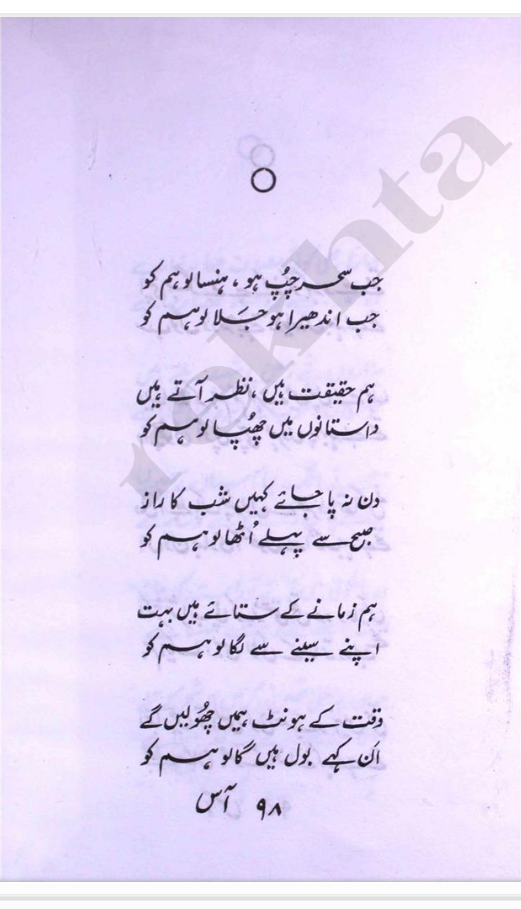 جب سحر چُپ ہو ، ہنسا لو ہم کو
جب اندھیرا ہو جلا لو ہم کو
ہم حقیقت ہیں ، نظر آتے ہیں
داستانوں میں چھُپا لو ہم کو
دن نہ پا جائے کہیں شب کا راز
صبح سے پہلے اُٹھا لو ہم کو
ہم زمانے کے ستائے ہیں بہت
اپنے سینے سے لگا لو ہم کو
وقت کے ہونٹ ہمیں چھُو لیں گے
اَن کہے بول ہیں گا لو ہم کو
۹۸ آس
rekhta